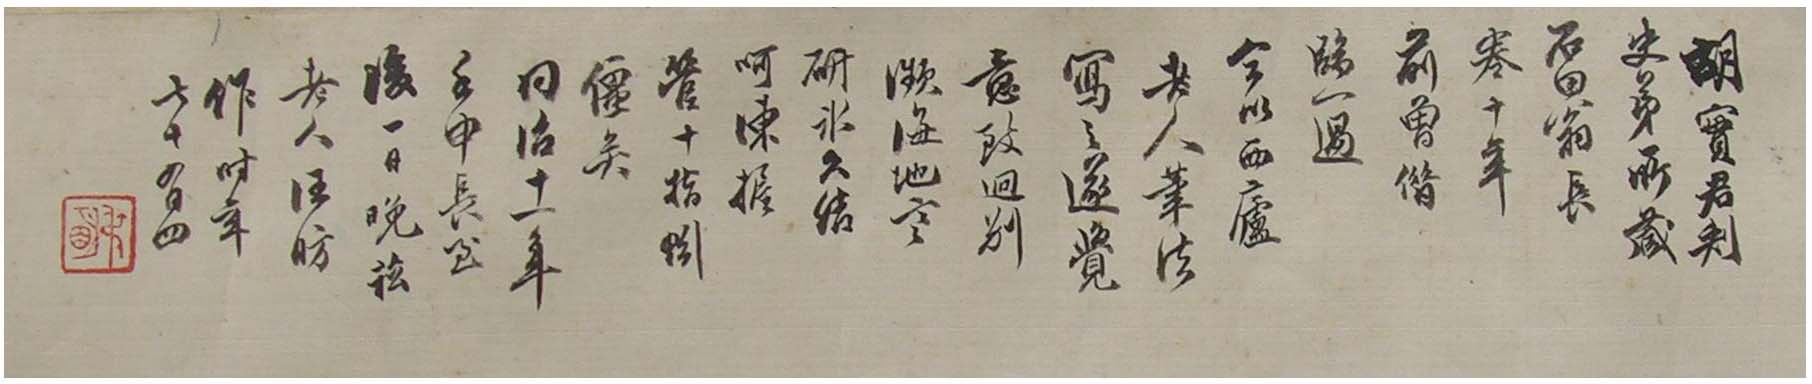 胡寶君刺
史弟所藏
石田翁長
卷十年
前曾借
臨一過
今以西廬
老人筆法
寫之遂覺
意致迥別
瀕海地寒
研冰久結
呵凍握
管十指
僵矣
同治十一年
壬申長至
後一日晚
老人汪昉
作時年
七十有四